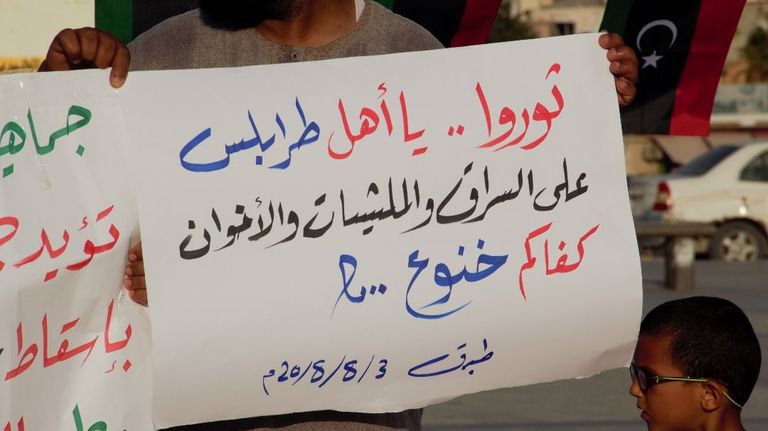 ثوروا .. يا أهل طرابلس
على السراق والملشيات والأخوان
كفاكم خنوع ..
طبرق 2018/8/3م
جماهي
تؤيد
بإسقاط